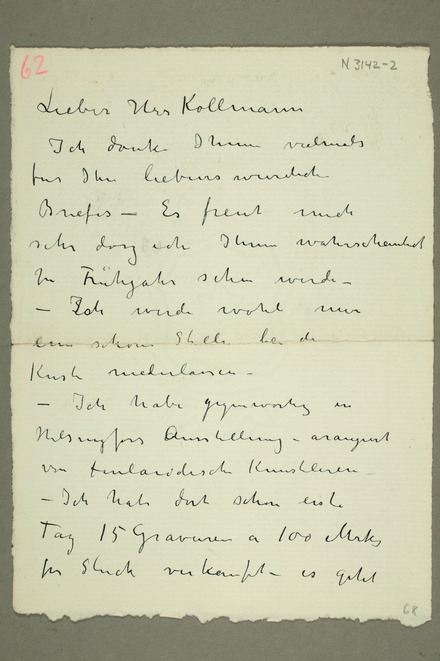 62
N 3142-2
Lieber Herr Kollmann
Ich danke Ihnen vielmals
für Ihre liebenswürdich
Briefes – Es freut mich
sehr dasz ich Ihnen wahrscheinlich
im Frühjahr sehen werde –
– Ich werde wohl nur
eine schöne Stelle bei der
Küste niederlassen –
– Ich habe gegenwärtig in
Helsingfors Ausstellung – arangiert
von Finländische Künstleren –
– Ich hab dort schon erste
Tag 15 Gravuren a 100 Mrks
per Stück verkauft – es geht
68